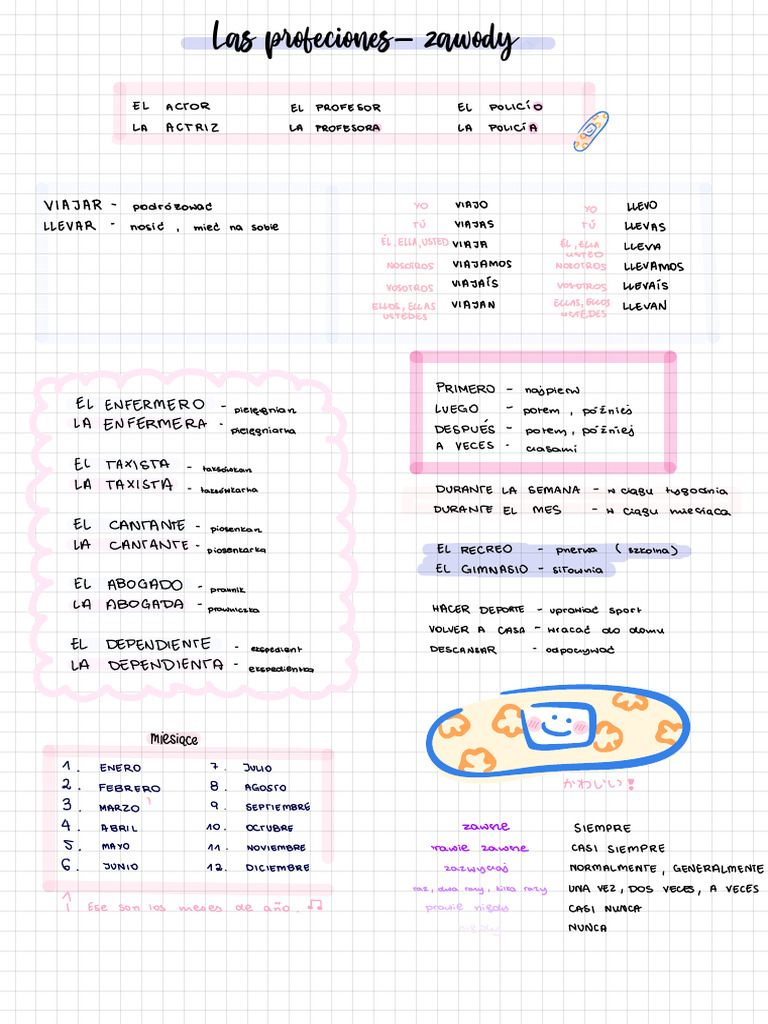 Las profeciones - zawody
EL ACTOR EL PROFESOR EL POLICÍO
LA ACTRIZ LA PROFESORA LA POLICÍA
VIAJAR - podróżować
LLEVAR - nosić, mieć na sobie
YO VIAJO
TÚ VIAJAS
ÉL, ELLA, USTED VIAJA
NOSOTROS VIAJAMOS
VOSOTROS VIAJAÍS
ELLOS, ELLAS USTEDES VIAJAN
YO LLEVO
TÚ LLEVAS
ÉL, ELLA USTED LLEVA
NOSOTROS LLEVAMOS
VOSOTROS LLEVAÍS
ELLAS, ELLOS USTEDES LLEVAN
EL ENFERMERO - pielęgniarz
LA ENFERMERA - pielęgniarka
EL TAXISTA - taksówkarz
LA TAXISTA - taksówkarka
EL CANTANTE - piosenkarz
LA CANTANTE - piosenkarka
EL ABOGADO - prawnik
LA ABOGADA - prawniczka
EL DEPENDIENTE - ekspedient
LA DEPENDIENTA - ekspedientka
PRIMERO - najpierw
LUEGO - potem, później
DESPUÉS - potem, później
A VECES - czasami
DURANTE LA SEMANA - w ciągu tygodnia
DURANTE EL MES - w ciągu miesiąca
EL RECREO - przerwa (szkolna)
EL GIMNASIO - siłownia
HACER DEPORTE - uprawiać sport
VOLVER A CASA - wracać do domu
DESCANSAR - odpoczywać
かわいい!
miesiące
1. ENERO 7. JULIO
2. FEBRERO 8. AGOSTO
3. MARZO 9. SEPTIEMBRE
4. ABRIL 10. OCTUBRE
5. MAYO 11. NOVIEMBRE
6. JUNIO 12. DICIEMBRE
Ese son los meses de año.
zawsze SIEMPRE
prawie zawsze CASI SIEMPRE
zazwyczaj NORMALMENTE, GENERALMENTE
raz, dwa razy, kilka razy UNA VEZ, DOS VECES, A VECES
prawie nigdy CASI NUNCA
nigdy NUNCA